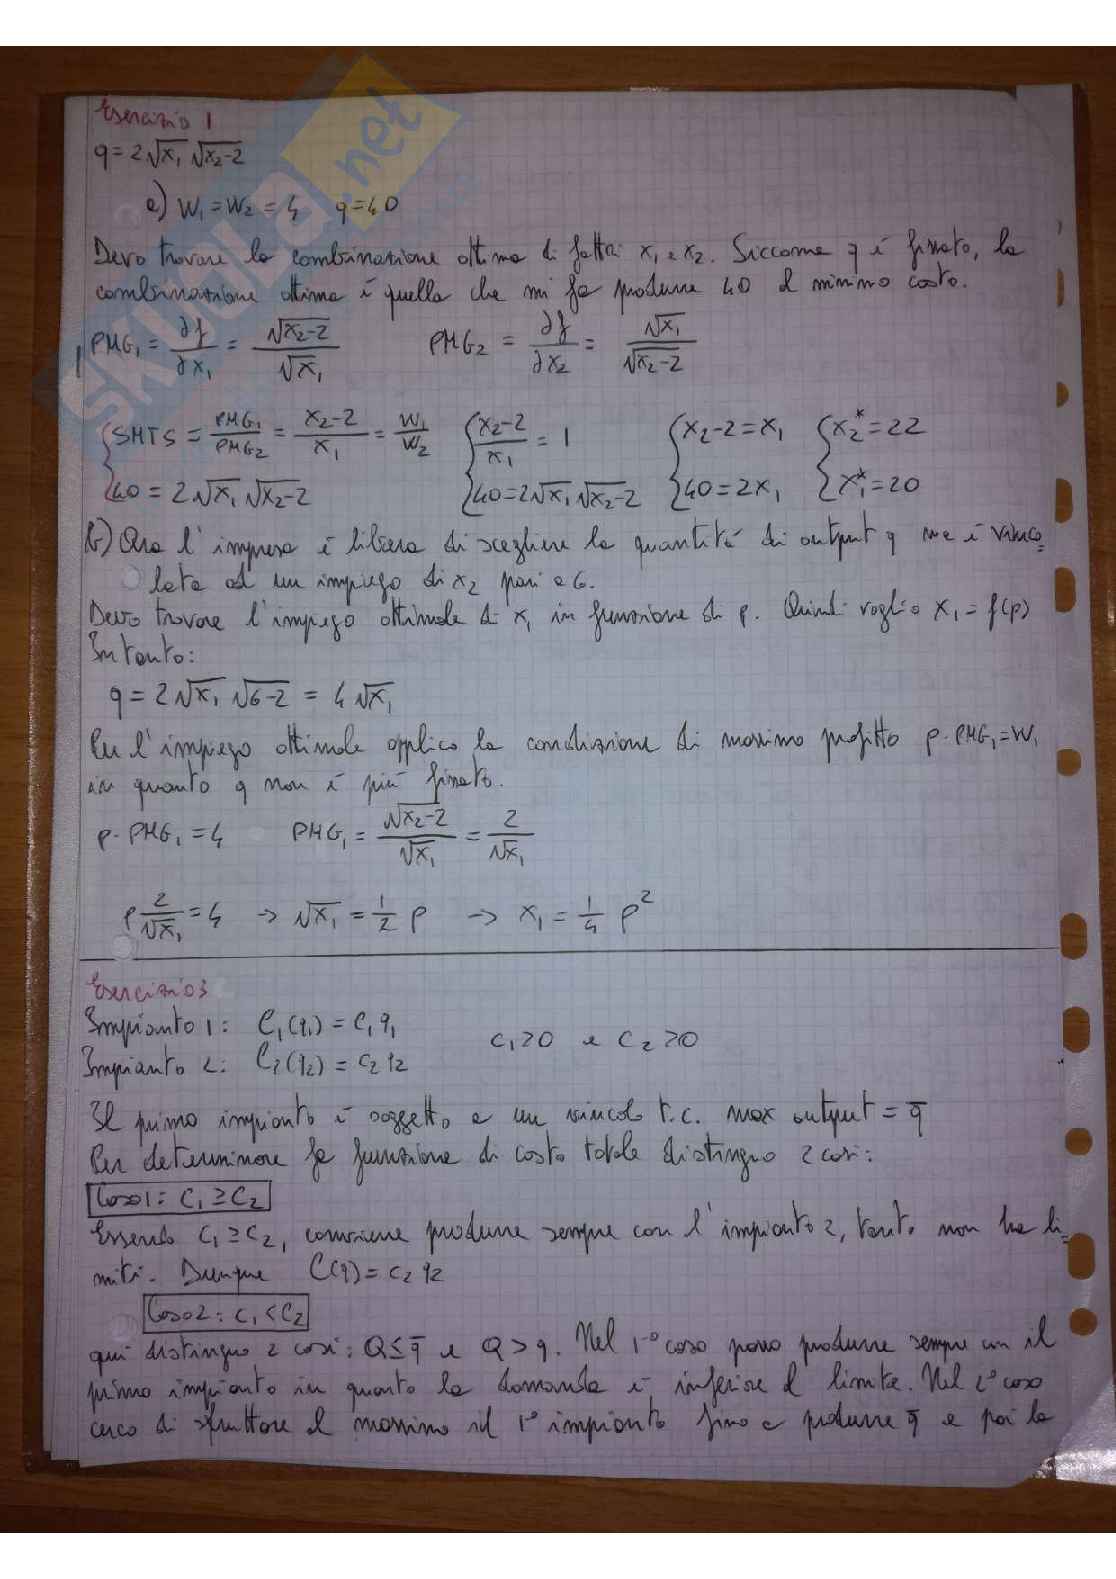 Esercizio 1
q = 2√x₁ √x₂-2
a) W₁ = W₂ = 4 q = 40
Devo trovare la combinazione ottima di fattori x₁ e x₂. Siccome q è fissato, la
combinazione ottima è quella che mi fa produrre 40 al minimo costo.
PMG₁ = ∂f/∂x₁ = √x₂-2/√x₁ PMG₂ = ∂f/∂x₂ = √x₁/√x₂-2
{SMTS = PMG₁/PMG₂ = x₂-2/x₁ = W₁/W₂ {x₂-2/x₁ = 1 {x₂-2 = x₁ {x₂* = 22
{40 = 2√x₁ √x₂-2 {40 = 2√x₁ √x₂-2 {40 = 2x₁ {x₁* = 20
b) Ora l'impresa è libera di scegliere la quantità di output q ma è vinco=
lata ad un impiego di x₂ pari a 6.
Devo trovare l'impiego ottimale di x₁ in funzione di p. Quindi voglio x₁ = f(p)
Intanto:
q = 2√x₁ √6-2 = 4√x₁
Per l'impiego ottimale applico la condizione di massimo profitto p·PMG₁ = W₁
in quanto q non è più fissato.
p·PMG₁ = 4 PMG₁ = √x₂-2/√x₁ = 2/√x₁
p 2/√x₁ = 4 → √x₁ = 1/2 p → x₁ = 1/4 p²
Esercizio 3
Impianto 1: C₁(q₁) = c₁q₁
c₁>0 e c₂>0
Impianto 2: C₂(q₂) = c₂q₂
Il primo impianto è soggetto a un vincolo t.c. max output = q̄
Per determinare la funzione di costo totale distinguo 2 casi:
Caso 1: c₁ ≥ c₂
Essendo c₁ ≥ c₂, conviene produrre sempre con l'impianto 2, tanto non ha li=
miti. Dunque C(q) = c₂q₂
Caso 2: c₁ < c₂
qui distinguo 2 casi: Q ≤ q̄ e Q > q. Nel 1° caso posso produrre sempre con il
primo impianto in quanto la domanda è inferiore al limite. Nel 2° caso
cerco di sfruttare al massimo il 1° impianto fino a produrre q̄ e poi la
SKUOLA.net